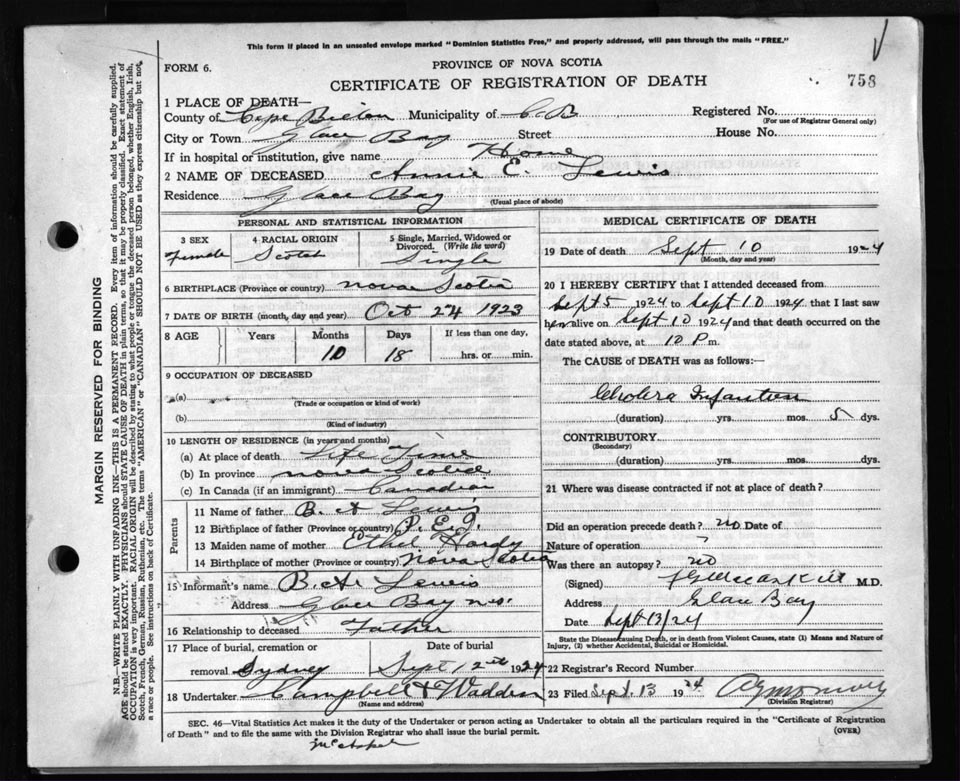 This form if placed in an unsealed envelope marked "Dominion Statistics Free," and properly addressed, will pass through the mails "FREE."
FORM 6.
PROVINCE OF NOVA SCOTIA
CERTIFICATE OF REGISTRATION OF DEATH
758
1 PLACE OF DEATH—
County of Cape Breton Municipality of C.B Registered No.
(For use of Registrar General only)
City or Town Glace Bay Street House No.
If in hospital or institution, give name Home
2 NAME OF DECEASED Annie E. Lewis
Residence Glace Bay
(Usual place of abode)
PERSONAL AND STATISTICAL INFORMATION
3 SEX Female
4 RACIAL ORIGIN Scotch
5 Single, Married, Widowed or Divorced. (Write the word) Single
6 BIRTHPLACE (Province or country) Nova Scotia
7 DATE OF BIRTH (month, day and year) Oct 24 1923
8 AGE Years Months Days If less than one day,
10 18 hrs. or min.
9 OCCUPATION OF DECEASED
(a)
(Trade or occupation or kind of work)
(b)
(Kind of industry)
10 LENGTH OF RESIDENCE (in years and months)
(a) At place of death Life Time
(b) In province Nova Scotia
(c) In Canada (if an immigrant) Canadian
Parents
11 Name of father B. A Lewis
12 Birthplace of father (Province or country) P.E.I.
13 Maiden name of mother Ethel Hardy
14 Birthplace of mother (Province or country) Nova Scotia
15 Informant's name B. A. Lewis
Address Glace Bay N.S.
16 Relationship to deceased Father
17 Place of burial, cremation or removal Sydney
Date of burial Sept 12th 1924
18 Undertaker Campbell & Wadden
(Name and address)
MEDICAL CERTIFICATE OF DEATH
19 Date of death Sept 10 1924
(Month, day and year)
20 I HEREBY CERTIFY that I attended deceased from
Sept 5 1924 to Sept 10 1924 that I last saw
her alive on Sept 10 1924 and that death occurred on the
date stated above, at 10 P m.
The CAUSE of DEATH was as follows:—
Cholera Infantum
(duration) yrs. mos. 5 dys.
CONTRIBUTORY
(Secondary)
(duration) yrs. mos. dys.
21 Where was disease contracted if not at place of death?
Did an operation precede death? no Date of
Nature of operation
Was there an autopsy? no
(Signed) M.D.
Address Glace Bay
Date Sept 13/24
State the Disease causing Death, or in death from Violent Causes, state (1) Means and Nature of Injury, (2) whether Accidental, Suicidal or Homicidal.
22 Registrar's Record Number
23 Filed Sept. 13 1924
(Division Registrar)
SEC. 46—Vital Statistics Act makes it the duty of the Undertaker or person acting as Undertaker to obtain all the particulars required in the "Certificate of Registration
of Death" and to file the same with the Division Registrar who shall issue the burial permit.
(OVER)
MARGIN RESERVED FOR BINDING
N.B.—WRITE PLAINLY WITH UNFADING INK—THIS IS A PERMANENT RECORD. Every item of information should be carefully supplied.
AGE should be stated EXACTLY. PHYSICIANS should STATE CAUSE OF DEATH in plain terms, so that it may be properly classified. Exact statement of
OCCUPATION is very important. RACIAL ORIGIN will be described by stating to what people or tongue the deceased person belonged, whether English, Irish,
Scotch, French, German, Russian, Ruthenian, etc. The terms "AMERICAN" or "CANADIAN" SHOULD NOT BE USED as they express citizenship but not
a race or people. See instructions on back of Certificate.